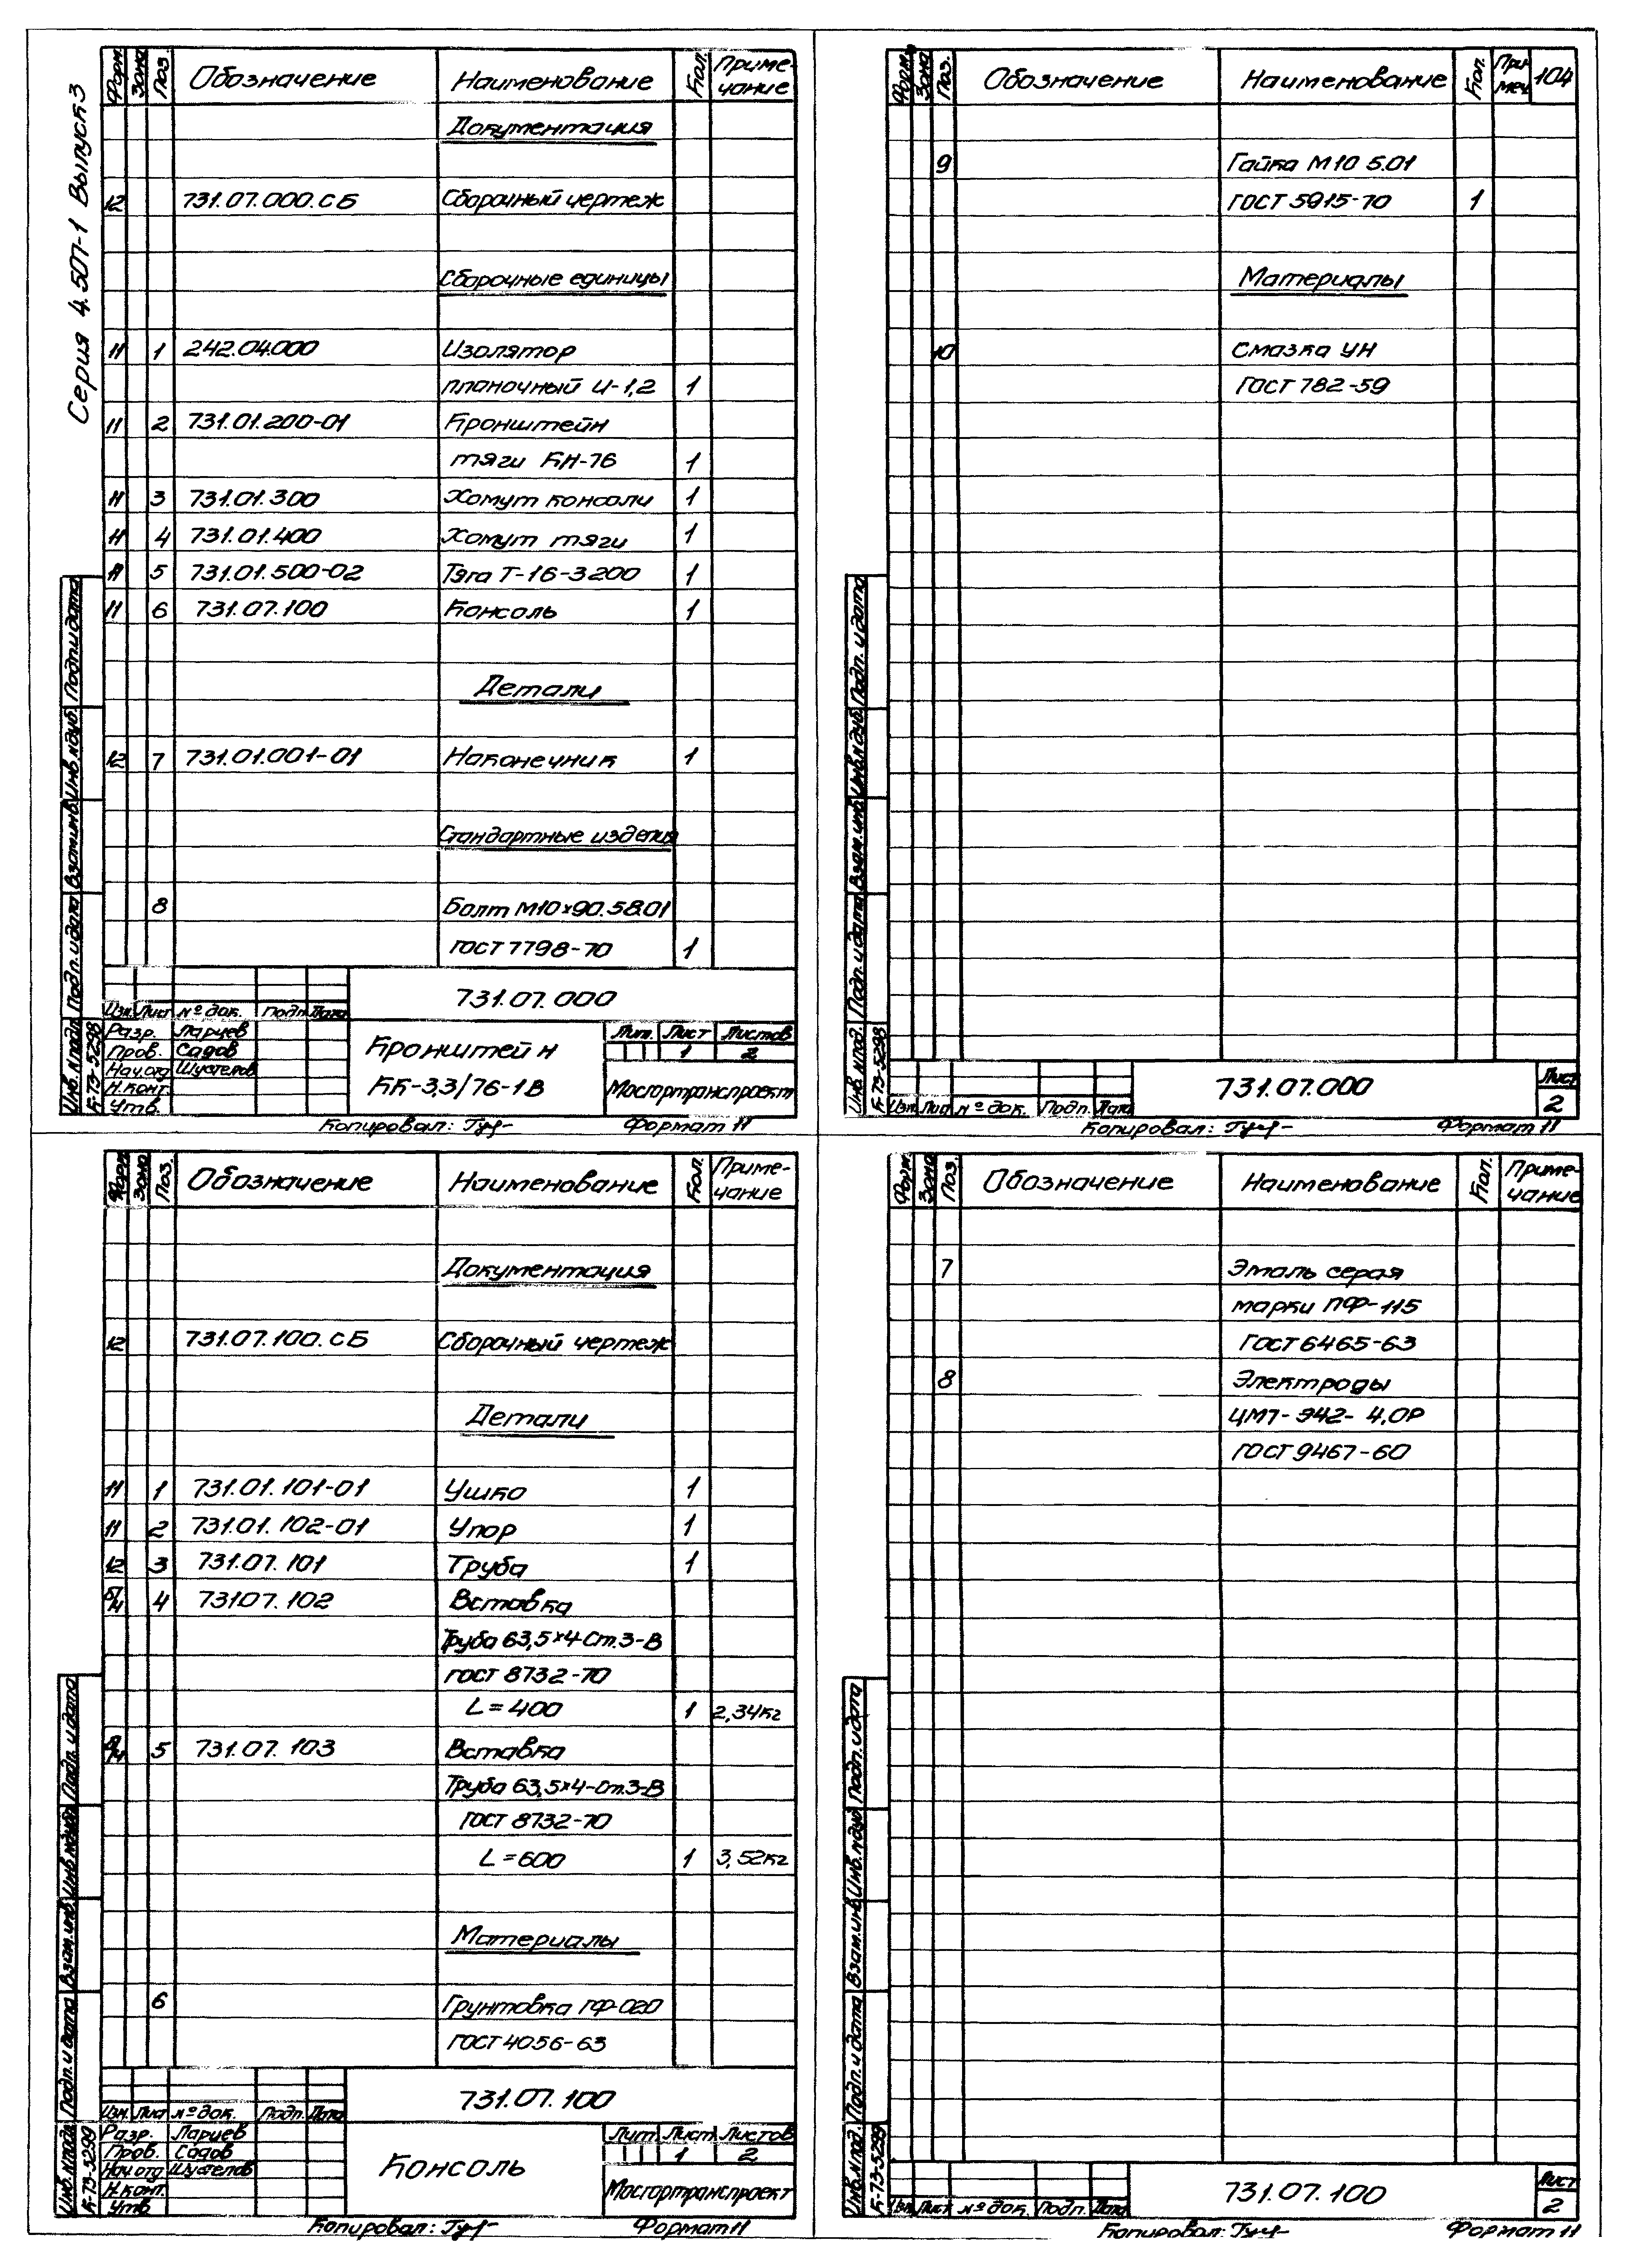 Серия 4.507-1 Выпуск 3
Форм. Зона Поз. Обозначение Наименование Кол. Приме-чание
Документация
12 731.07.000.СБ Сборочный чертеж
Сборочные единицы
11 1 242.04.000 Изолятор
планочный И-1,2 1
11 2 731.01.200-01 Кронштейн
тяги КН-76 1
11 3 731.01.300 Хомут консоли 1
11 4 731.01.400 Хомут тяги 1
11 5 731.01.500-02 Тяга Т-16-3200 1
11 6 731.07.100 Консоль 1
Детали
12 7 731.01.001-01 Наконечник 1
Стандартные изделия
8 Болт М10х90.58.01
ГОСТ 7798-70 1
731.07.000
Изм. Лист № док. Подп. Дата
Разр. Ларцев
Пров. Садов
Нач.отд Шустелов
Н.конт.
Утв.
Кронштейн
КК-3,3/76-1В
Лит. Лист Листов
1 2
Мосгортранспроект
Инв. № подл. Подп. и дата Взам.инв. Инв. № дуб. Подп. и дата
К-73-5298
Копировал: Формат 11
Форм. Зона Поз. Обозначение Наименование Кол. При меч 104
9 Гайка М10 5.01
ГОСТ 5915-70 1
Материалы
10 Смазка УН
ГОСТ 782-59
Инв. № подл. Подп. и дата Взам.инв. Инв. № дуб. Подп. и дата
К-73-5298
Изм. Лист № док. Подп. Дата
731.07.000
Лист
2
Копировал: Формат 11
Форм. Зона Поз. Обозначение Наименование Кол. Приме-чание
Документация
12 731.07.100.СБ Сборочный чертеж
Детали
11 1 731.01.101-01 Ушко 1
11 2 731.01.102-01 Упор 1
12 3 731.07.101 Труба 1
б/ч 4 73107.102 Вставка
Труба 63,5х4-Ст.3-В
ГОСТ 8732-70
L=400 1 2,34кг
б/ч 5 731.07.103 Вставка
Труба 63,5х4-Ст.3-В
ГОСТ 8732-70
L=600 1 3,52кг
Материалы
6 Грунтовка ГФ-020
ГОСТ 4056-63
731.07.100
Изм. Лист № док. Подп. Дата
Разр. Ларцев
Пров. Садов
Нач.отд Шустелов
Н.конт.
Утв
Консоль
Лит Лист Листов
1 2
Мосгортранспроект
Инв. № подл. Подп. и дата Взам.инв. Инв. № дуб. Подп. и дата
К-73-5299
Копировал: Формат 11
Форм. Зона Поз. Обозначение Наименование Кол. Приме-чание
7 Эмаль серая
марки ПФ-115
ГОСТ 6465-63
8 Электроды
ЦМ7-Э42-4,0Р
ГОСТ 9467-60
Инв. № под. Подп. и дата Взам.инв. Инв. № дуб. Подп. и дата
К-73-5299
Изм. Лист № док. Подп. Дата
731.07.100
Лист
2
Копировал: Формат 11